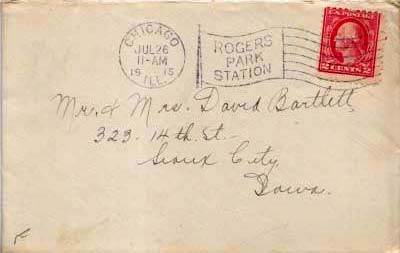 CHICAGO
JUL 26
11-AM
1915
ILL.
ROGERS
PARK
STATION
U.S. POSTAGE
2 CENTS 2
Mr. & Mrs. David Bartlett
323 - 14th. St. -
Sioux City
Iowa.